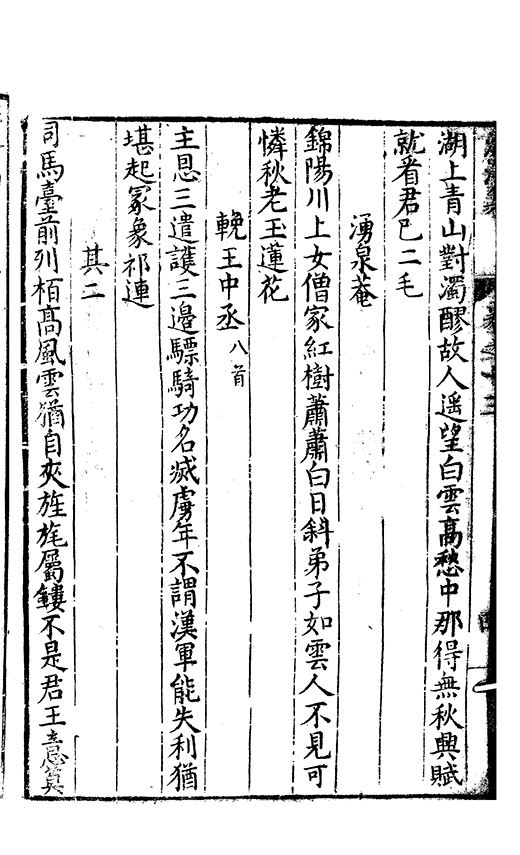 湖上青山對濁醪故人遥望白雲高愁中那得無秋興賦
就看君已二毛
湧泉菴
錦陽川上女僧家紅樹蕭蕭白日斜弟子如雲人不見可
憐秋老玉蓮花
輓王中丞八首
主恩三遣護三邊驃騎功名滅虜年不謂漢軍能失利猶
堪起冢象祁連
其二
司馬臺前列栢高風雲猶自夾旌旄屬鏤不是君王意莫